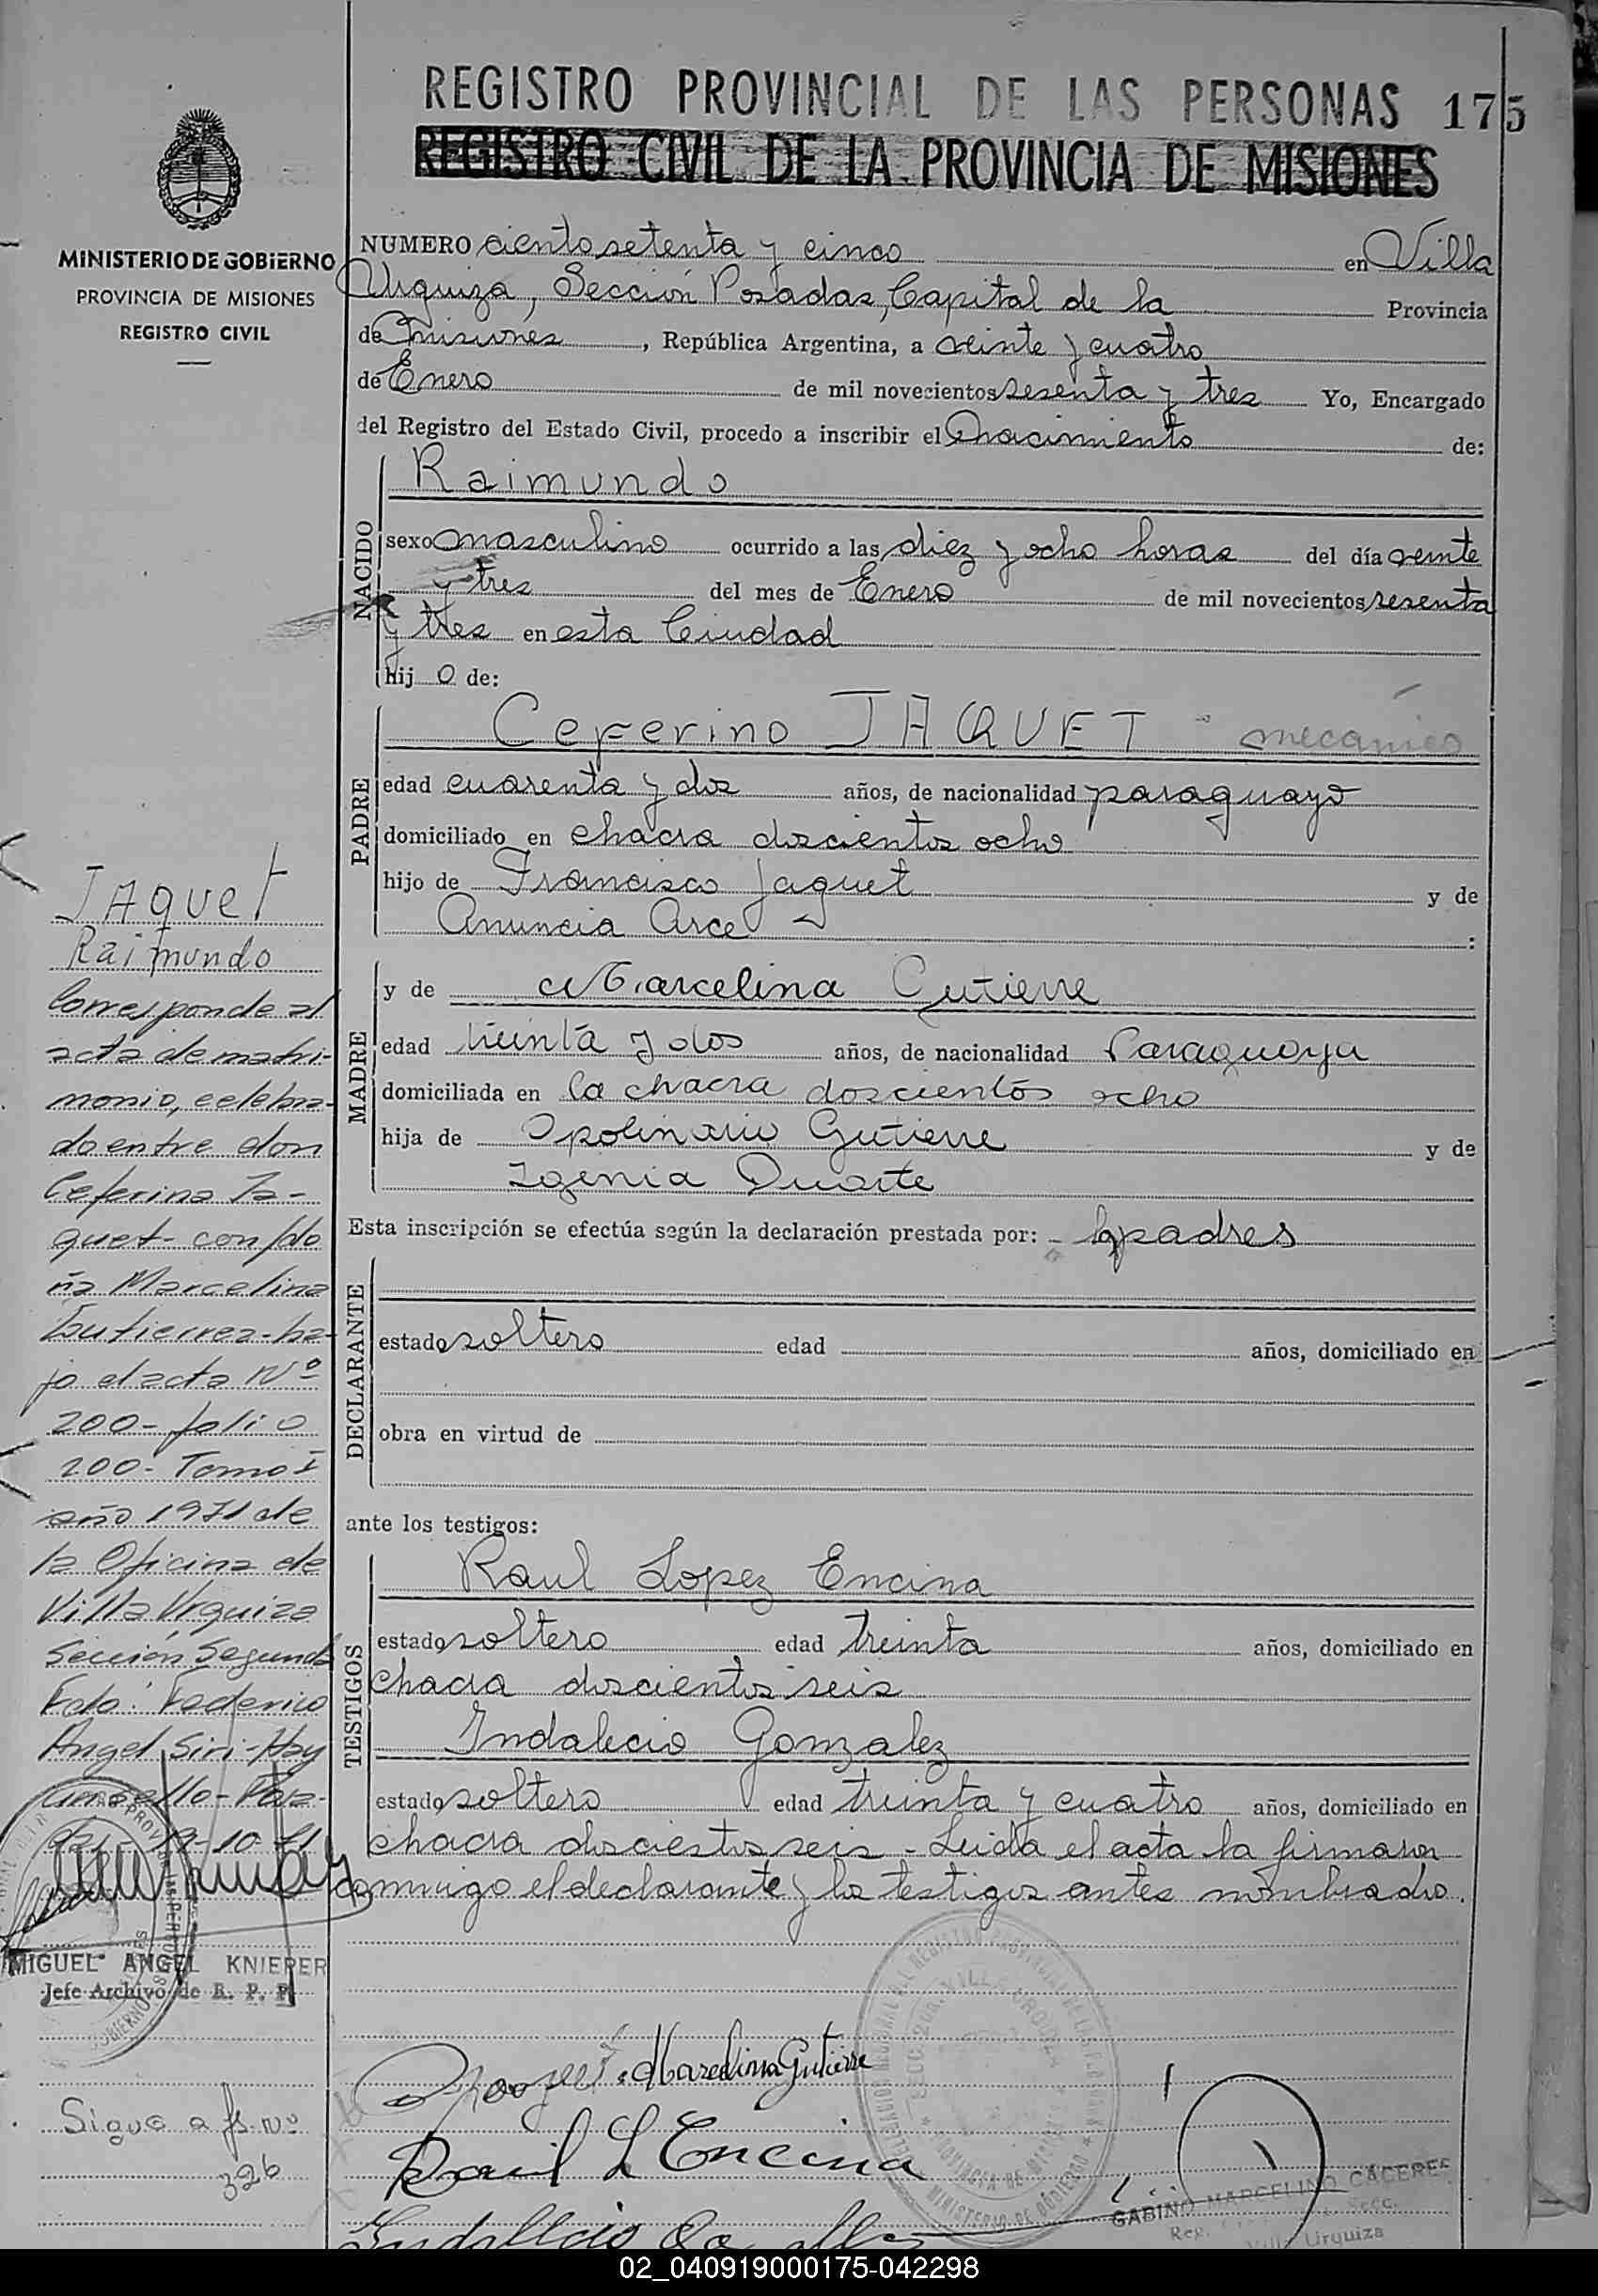 REGISTRO PROVINCIAL DE LAS PERSONAS 175
REGISTRO CIVIL DE LA PROVINCIA DE MISIONES
MINISTERIO DE GOBIERNO
PROVINCIA DE MISIONES
REGISTRO CIVIL
NUMERO ciento setenta y cinco en Villa
Urquiza, Sección Posadas, Capital de la Provincia
de Misiones, República Argentina, a veinte y cuatro
de Enero de mil novecientos sesenta y tres Yo, Encargado
del Registro del Estado Civil, procedo a inscribir el nacimiento de:
NACIDO
Raimundo
sexo masculino ocurrido a las diez y ocho horas del día veinte
y tres del mes de Enero de mil novecientos sesenta
y tres en esta Ciudad
hij o de:
PADRE
Ceferino JAQUET mecanico
edad cuarenta y dos años, de nacionalidad paraguayo
domiciliado en chacra doscientos ocho
hijo de Francisco Jaquet y de
Anuncia Arce :
MADRE
y de Marcelina Gutierre
edad treinta y dos años, de nacionalidad Paraguaya
domiciliada en la chacra doscientos ocho
hija de Opolinario Gutierre y de
Igenia Duarte
Esta inscripción se efectúa según la declaración prestada por: padres
DECLARANTE
estado soltero edad años, domiciliado en
obra en virtud de
ante los testigos:
TESTIGOS
Raul Lopez Encina
estado soltero edad treinta años, domiciliado en
chacra doscientos seis
Indalecio Gonzalez
estado soltero edad treinta y cuatro años, domiciliado en
chacra doscientos seis - Leida el acta la firmaron
conmigo el declarante y los testigos antes nombrados.
JAquet
Raimundo
Corresponde al
acta de matri-
monio, celebra-
do entre don
Ceferino Ja-
quet con do
ña Marcelina
Gutierrez - ba-
jo el acta Nº
200 - folio
200 - Tomo I
año 1971 de
la Oficina de
Villa Urquiza
Sección Segunda
Fdo: Federico
Angel Siri - Hay
un sello - Posa-
19-10-71
MIGUEL ANGEL KNIEPER
Jefe Archivo de R. P. P.
Sigue a fs. nº
326
Marcelina Gutierre
Raul L Encina
Indalecio
GABINO MARCELINO CACERES
Villa Urquiza
02_040919000175-042298